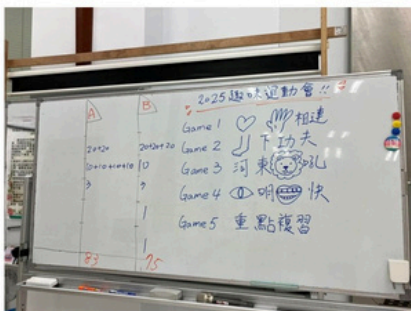 2025趣味運動會!!
Game 1 相連
Game 2 下功夫
Game 3 河東吼
Game 4 明快
Game 5 重點複習
A B
20+20 20+20+20
10+10+10+10 10
3
83 75